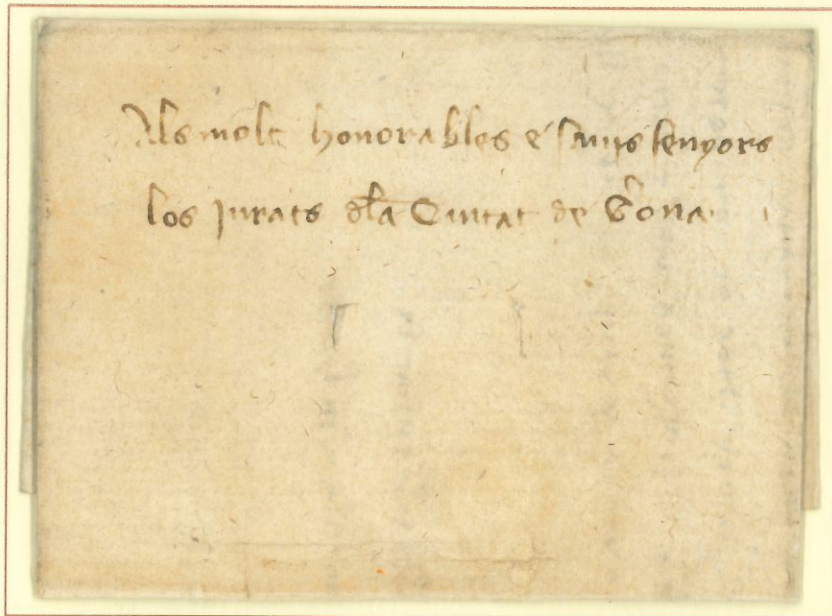 Als molt honorables e sauis senyors
los Jurats dla Ciutat de Gona